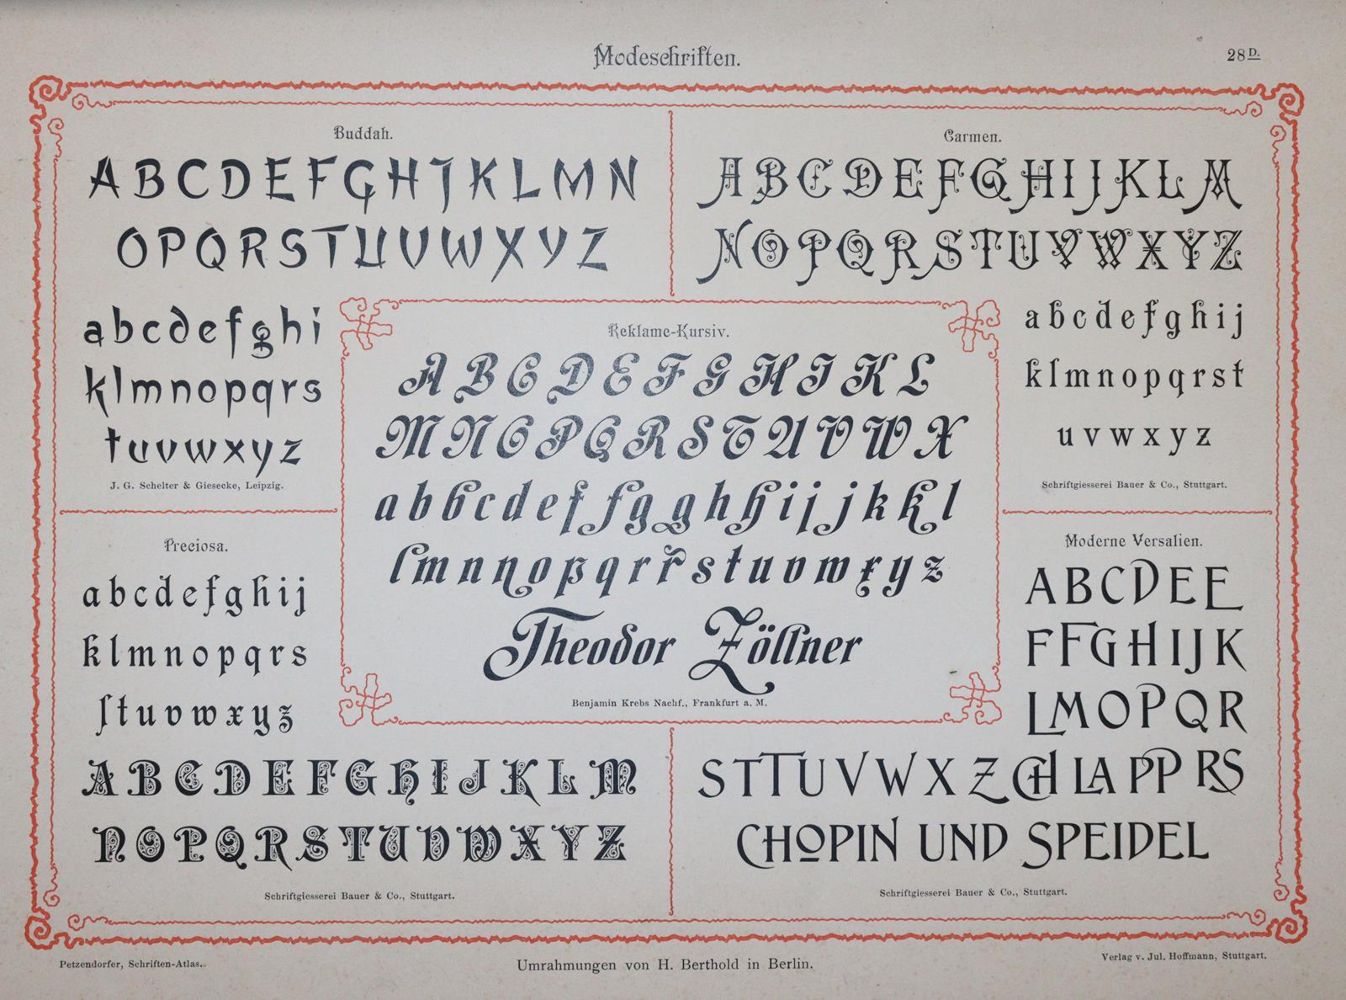 Modeschriften.
28 D.
Buddah.
A B C D E F G H I J K L M N
O P Q R S T U U V W X Y Z
a b c d e f g h i
k l m n o p q r s
t u v v w x y z
J. G. Schelter & Giesecke, Leipzig.
Carmen.
A B C D E F G H I J K L M
N O P Q R S T U V W X Y Z
a b c d e f g h i j
k l m n o p q r s t
u v w x y z
Schriftgiesserei Bauer & Co., Stuttgart.
Reklame-Kursiv.
A B C D E F G H I K L
M N O P Q R S T U V W X
a b b c d e f f g g h h i j j k k l
l m n n o p q r r s t u v w x y z
Theodor Zöllner
Benjamin Krebs Nachf., Frankfurt a. M.
Preciosa.
a b c d e f g h i j
k l m n o p q r s
ſ t u v w x y z
A B C D E F G H I J K L M
N O P Q R S T U V W X Y Z
Schriftgiesserei Bauer & Co., Stuttgart.
Moderne Versalien.
A B C D E E
F F G H I J K
L M O P Q R
S T T U V W X Z CH LA PP RS
CHOPIN UND SPEIDEL
Schriftgiesserei Bauer & Co., Stuttgart.
Petzendorfer, Schriften-Atlas.
Umrahmungen von H. Berthold in Berlin.
Verlag v. Jul. Hoffmann, Stuttgart.